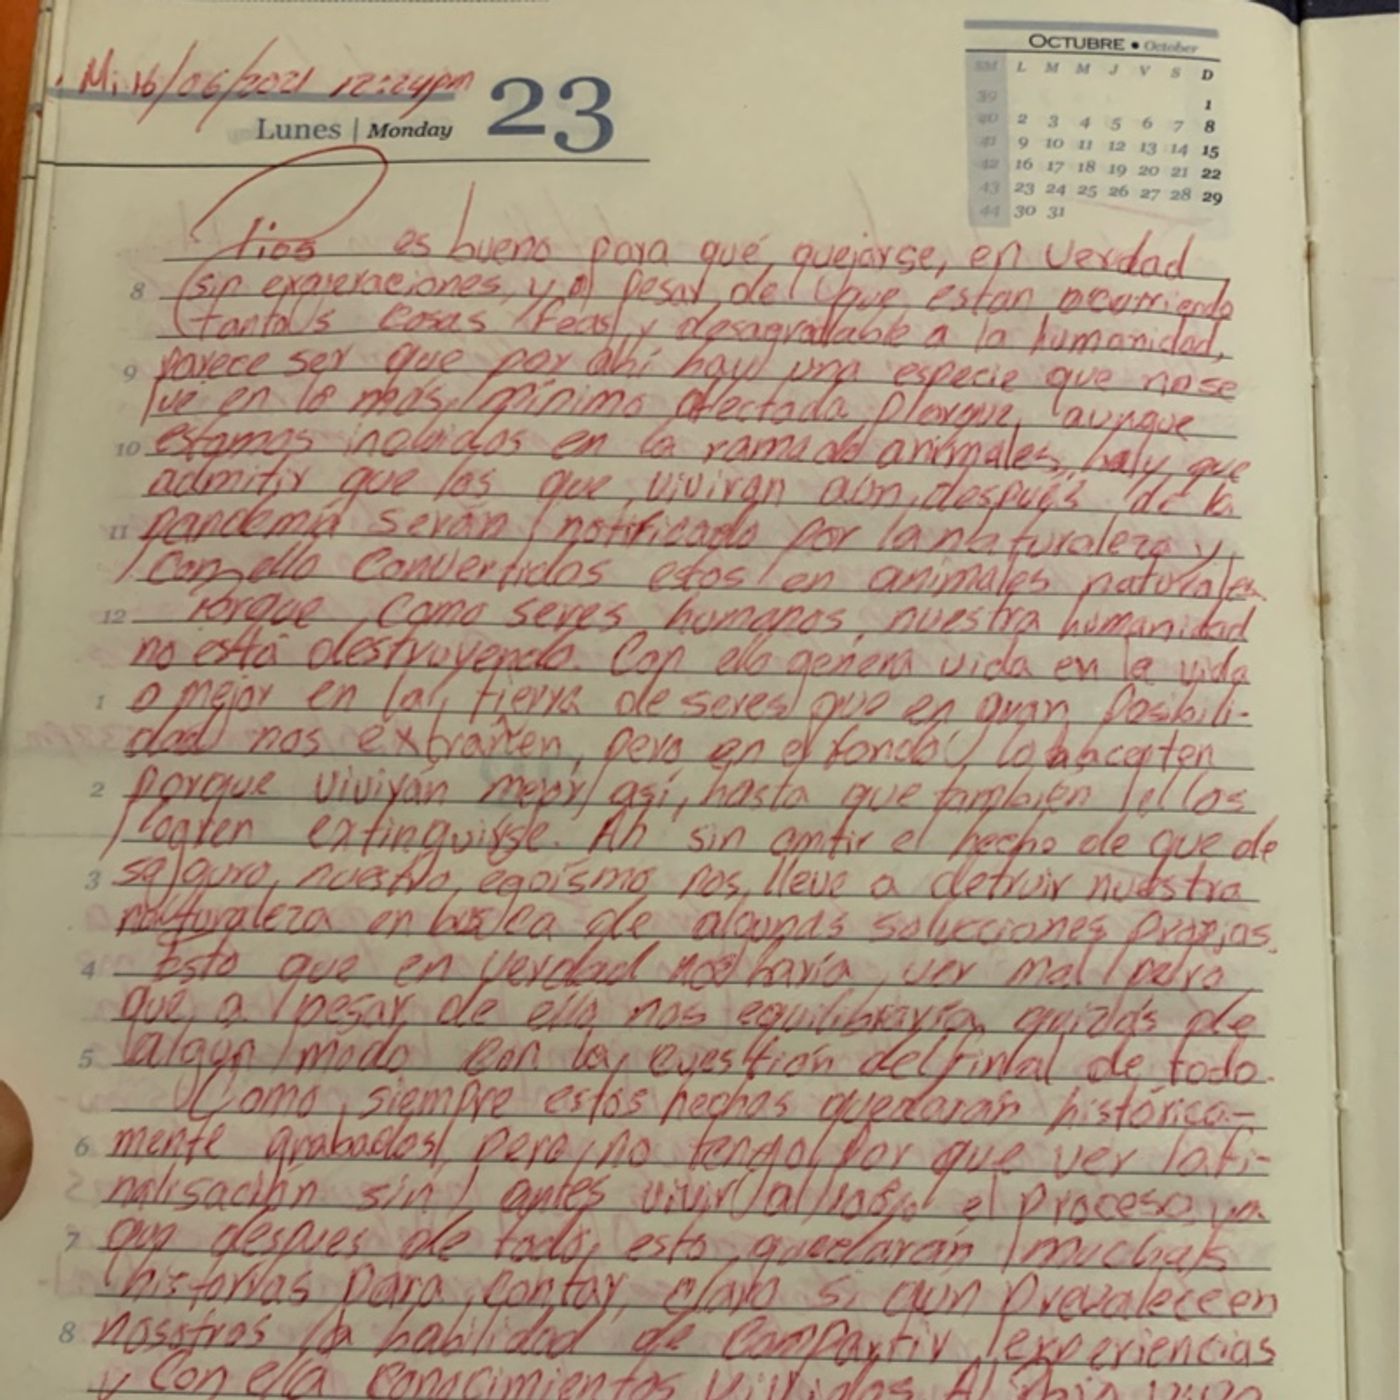 Mi 16/06/2021 12:24pm
Lunes | Monday 23
OCTUBRE • October
SM L M M J V S D
39 1
40 2 3 4 5 6 7 8
41 9 10 11 12 13 14 15
42 16 17 18 19 20 21 22
43 23 24 25 26 27 28 29
44 30 31
Dios es bueno para qué quejarse, en verdad
8 sin exageraciones, y a pesar del que estan ocurriendo
tantas cosas feas y desagradable a la humanidad,
9 parece ser que por ahí hay una especie que no se
ve en lo más mínimo afectada. Porque, aunque
10 estamos incluidos en la rama de animales, hay que
admitir que los que vivirán aún después de la
11 pandemia serán notificado por la naturaleza y
con ello convertidos estos en animales naturales.
12 Porque como seres humanos, nuestra humanidad
no está destruyendo. Con ello genera vida en la vida
1 o mejor en la tierra de seres que en gran posibili-
dad nos extrañen, pero en el fondo lo acepten
2 porque vivirán mejor así, hasta que también ellos
logren extinguirse. Ah sin omitir el hecho de que de
3 seguro, nuestro egoísmo nos lleve a detruir nuestra
naturaleza en busca de algunas soluciones propias.
4 Esto que en verdad nos haría ver mal pero
que, a pesar de ello nos equilibraría quizás de
5 algún modo con la cuestión del final de todo.
Como siempre estos hechos quedarán histórica-
6 mente grabados, pero no tengo por que ver la fi-
nalisación sin antes vivir el proceso, ya
7 que despues de todo, esto quedarán muchas
historias para contar, claro si aún prevalece en
8 nosotros la habilidad de compartir experiencias
y con ella conocimientos vividos.